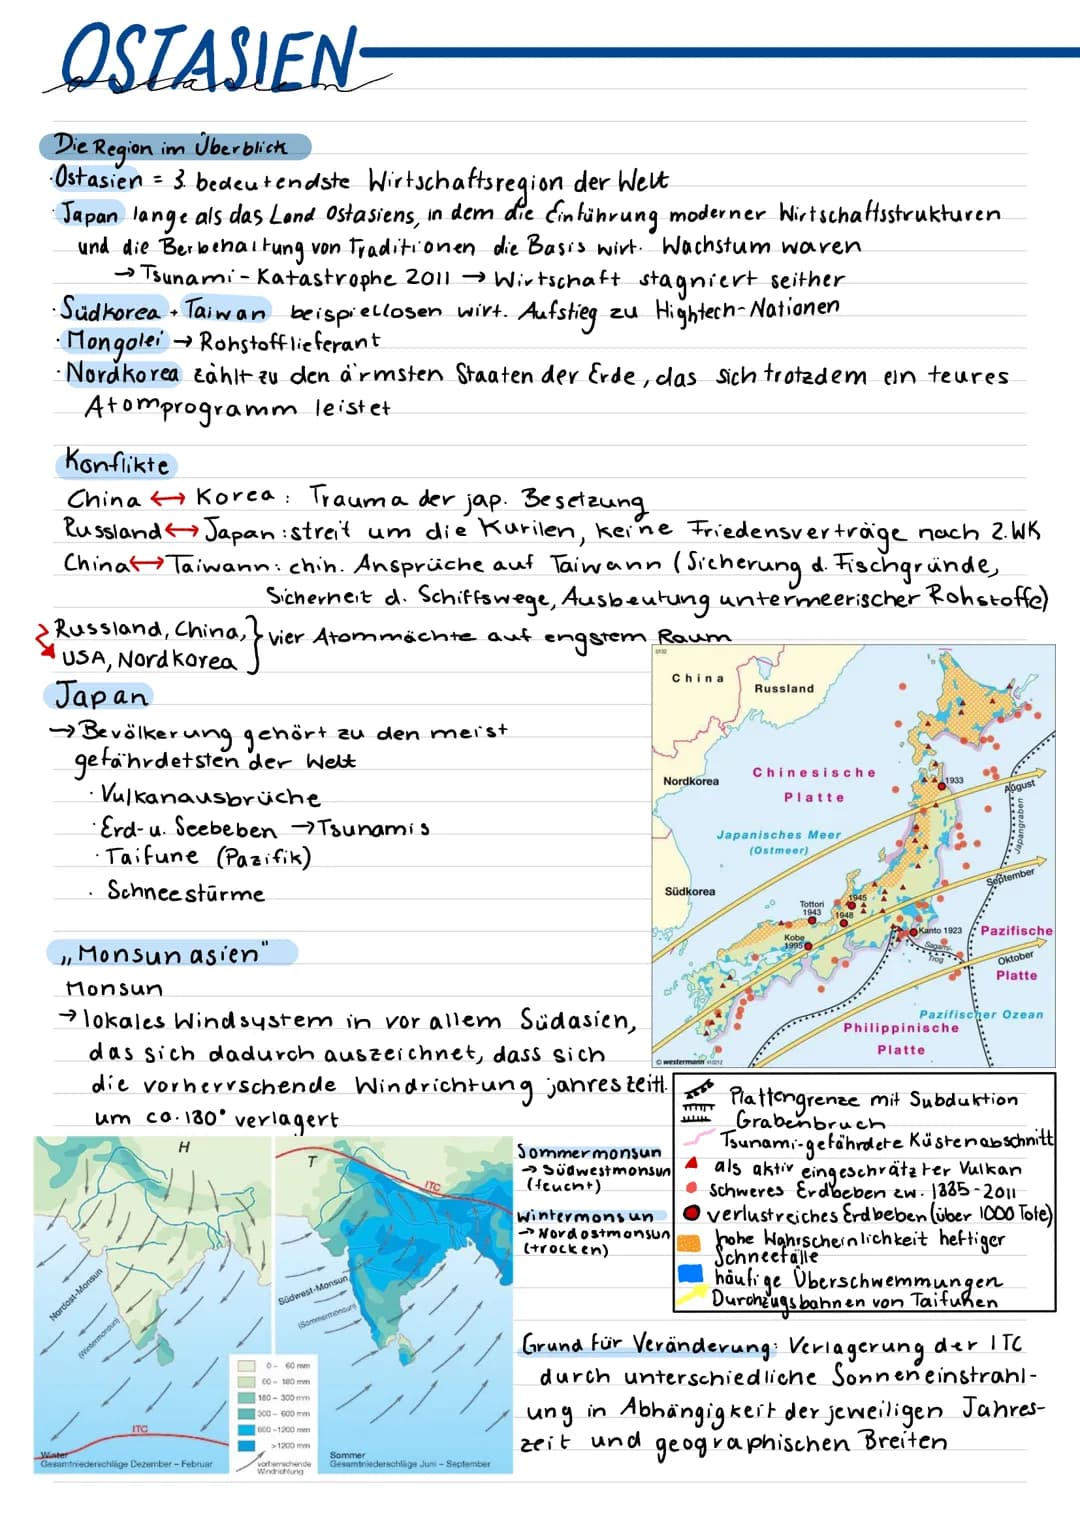 OSTASIEN
ostasien
Die Region im Überblick
·Ostasien = 3. bedeutendste Wirtschaftsregion der Welt
·Japan lange als das Land Ostasiens, in dem die Einführung moderner Wirtschaftsstrukturen
und die Berbehaltung von Traditionen die Basis wirt. Wachstum waren
→ Tsunami-Katastrophe 2011 → Wirtschaft stagniert seither
·Südkorea + Taiwan beispiellosen wirt. Aufstieg zu Hightech-Nationen
·Mongolei → Rohstofflieferant
·Nordkorea zählt zu den ärmsten Staaten der Erde, das sich trotzdem ein teures
Atomprogramm leistet
Konflikte
China ↔ Korea: Trauma der jap. Besetzung
Russland ↔ Japan: streit um die Kurilen, keine Friedensverträge nach 2.WK
China ↔ Taiwann: chin. Ansprüche auf Taiwann (Sicherung d. Fischgründe,
Sicherheit d. Schiffswege, Ausbeutung untermeerischer Rohstoffe)
Russland, China, } vier Atommächte auf engstem Raum
USA, Nordkorea
Japan
→ Bevölkerung gehört zu den meist
gefährdetsten der Welt
· Vulkanausbrüche
· Erd- u. Seebeben → Tsunamis
· Taifune (Pazifik)
· Schneestürme
China
Russland
Nordkorea
Chinesische
Platte
1933
August
Japangraben
Japanisches Meer
(Ostmeer)
September
Südkorea
Tottori
1943
1945
1948
Kobe
1995
Kanto 1923
Sagami-
Trog
Pazifische
Oktober
Platte
Pazifischer Ozean
Philippinische
Platte
© westermann
„Monsunasien"
Monsun
→ lokales Windsystem in vor allem Südasien,
das sich dadurch auszeichnet, dass sich
die vorherrschende Windrichtung jahreszeitl.
um ca. 180° verlagert
Plattengrenze mit Subduktion
Grabenbruch
Tsunami-gefährdete Küstenabschnitt
als aktiv eingeschrätzter Vulkan
schweres Erdbeben zw. 1885-2011
verlustreiches Erdbeben (über 1000 Tote)
hohe Wahrscheinlichkeit heftiger
Schneefälle
häufige Überschwemmungen
Durchzugsbahnen von Taifunen
H
Nordost-Monsun
(Wintermonsun)
ITC
Winter
Gesamtniederschläge Dezember – Februar
0 - 60 mm
60 - 180 mm
180 - 300 mm
300 - 600 mm
600 - 1200 mm
> 1200 mm
vorherrschende
Windrichtung
T
ITC
Südwest-Monsun
(Sommermonsun)
Sommer
Gesamtniederschläge Juni – September
Sommermonsun
→ Südwestmonsun
(feucht)
Wintermonsun
→ Nordostmonsun
(trocken)
Grund für Veränderung: Verlagerung der ITC
durch unterschiedliche Sonneneinstrahl-
ung in Abhängigkeit der jeweiligen Jahres-
zeit und geographischen Breiten